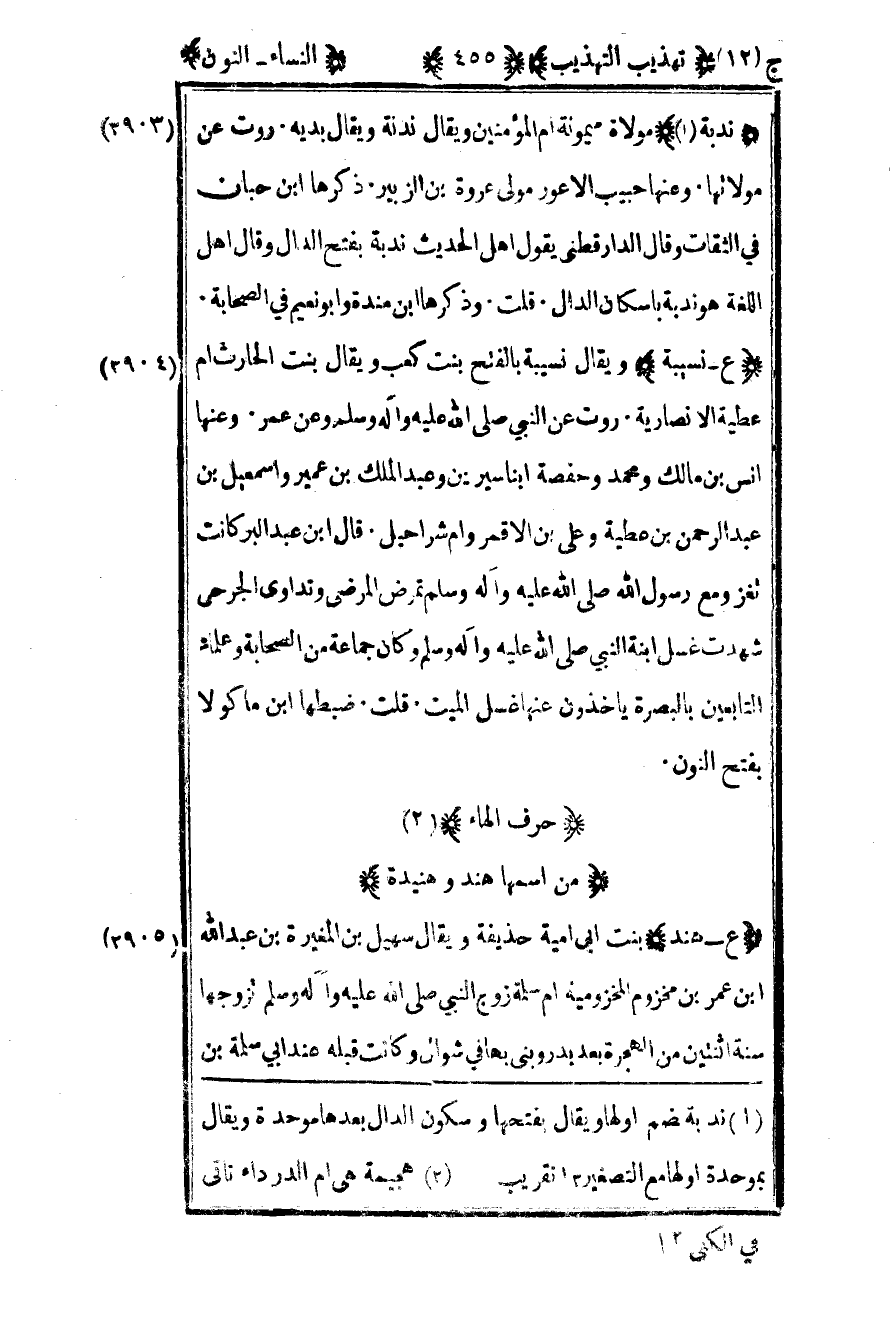 ج (١٢) ﴿ تهذيب التهذيب ﴾ ﴿ ٤٥٥ ﴾ ﴿ النساء ـ النون ﴾
﴿ ندبة (١) ﴾ مولاة ميمونة ام المؤمنين ويقال ندنة ويقال بديه ٠ روت عن (٢٩٠٣)
مولاتها ٠ وعنها حبيب الاعور مولى عروة بن الزبير ٠ ذكرها ابن حبان
في الثقات وقال الدارقطنى يقول اهل الحديث ندبة بفتح الدال وقال اهل
اللغة هو ندبة باسكان الدال ٠ قلت ٠ وذكرها ابن مندة وابونعيم في الصحابة ٠
﴿ ع ـ نسيبة ﴾ ويقال نسيبة بالفتح بنت كعب ويقال بنت الحارث ام (٢٩٠٤)
عطية الانصارية ٠ روت عن النبي صلى الله عليه وآله وسلم وعن عمر ٠ وعنها
انس بن مالك ومحمد وحفصة ابنا سيرين وعبد الملك بن عمير واسمعيل بن
عبد الرحمن بن عطية وعلى بن الاقمر وام شراحيل ٠ قال ابن عبد البر كانت
تغزو مع رسول الله صلى الله عليه وآله وسلم تمرض المرضى وتداوى الجرحى
شهدت غسل ابنة النبي صلى الله عليه وآله وسلم وكان جماعة من الصحابة وعلماء
التابعين بالبصرة ياخذون عنها غسل الميت ٠ قلت ٠ ضبطها ابن ماكولا
بفتح النون ٠
﴿ حرف الهاء ﴾ (٢)
﴿ من اسمها هند و هنيدة ﴾
﴿ ع ـ هند ﴾ بنت ابى امية حذيفة ويقال سهيل بن المغيرة بن عبدالله (٢٩٠٥)
ابن عمر بن مخزوم المخزومية ام سلمة زوج النبي صلى الله عليه وآله وسلم تزوجها
سنة اثنتين من الهجرة بعد بدر وبنى بها في شوال وكانت قبله عند ابي سلمة بن
(١) ندبة بضم اولها ويقال بفتحها و سكون الدال بعدها موحدة ويقال
بموحدة اولها مع التصغير ١٢ تقريب (٢) هجيمة هى ام الدرداء تاتى
في الكنى ١٢